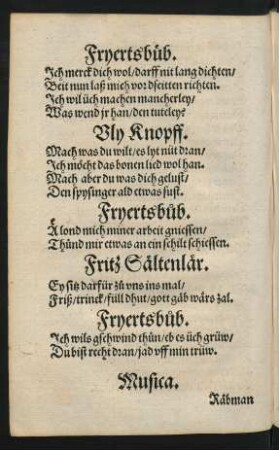 Fryertsbüb.
Ich merck dich wol/ darff nit lang dichten/
Beit nun laß mich vordseitten richten.
Ich wil üch machen mancherley/
Was wend jr han/ den tuteley?
Uly Knopff.
Mach was du wilt/ es lyt nüt dran/
Ich möcht das bonen lied wol han.
Mach aber du was dich gelust/
Den spysinger ald etwas sust.
Fryertsbüb.
Alond mich miner arbeit gniessen/
Thünd mir etwas an ein schilt schiessen.
Fritz Sältenlär.
Ey sitz darfür zů vns ins mal/
Friß/ trinck/ füll dhut/ gott gäb wärs zal.
Fryertsbüb.
Ich wils gschwind thůn/ eb es üch grüw/
Du bist recht dran/ jad vff min trüw.
Musica.
Räbman